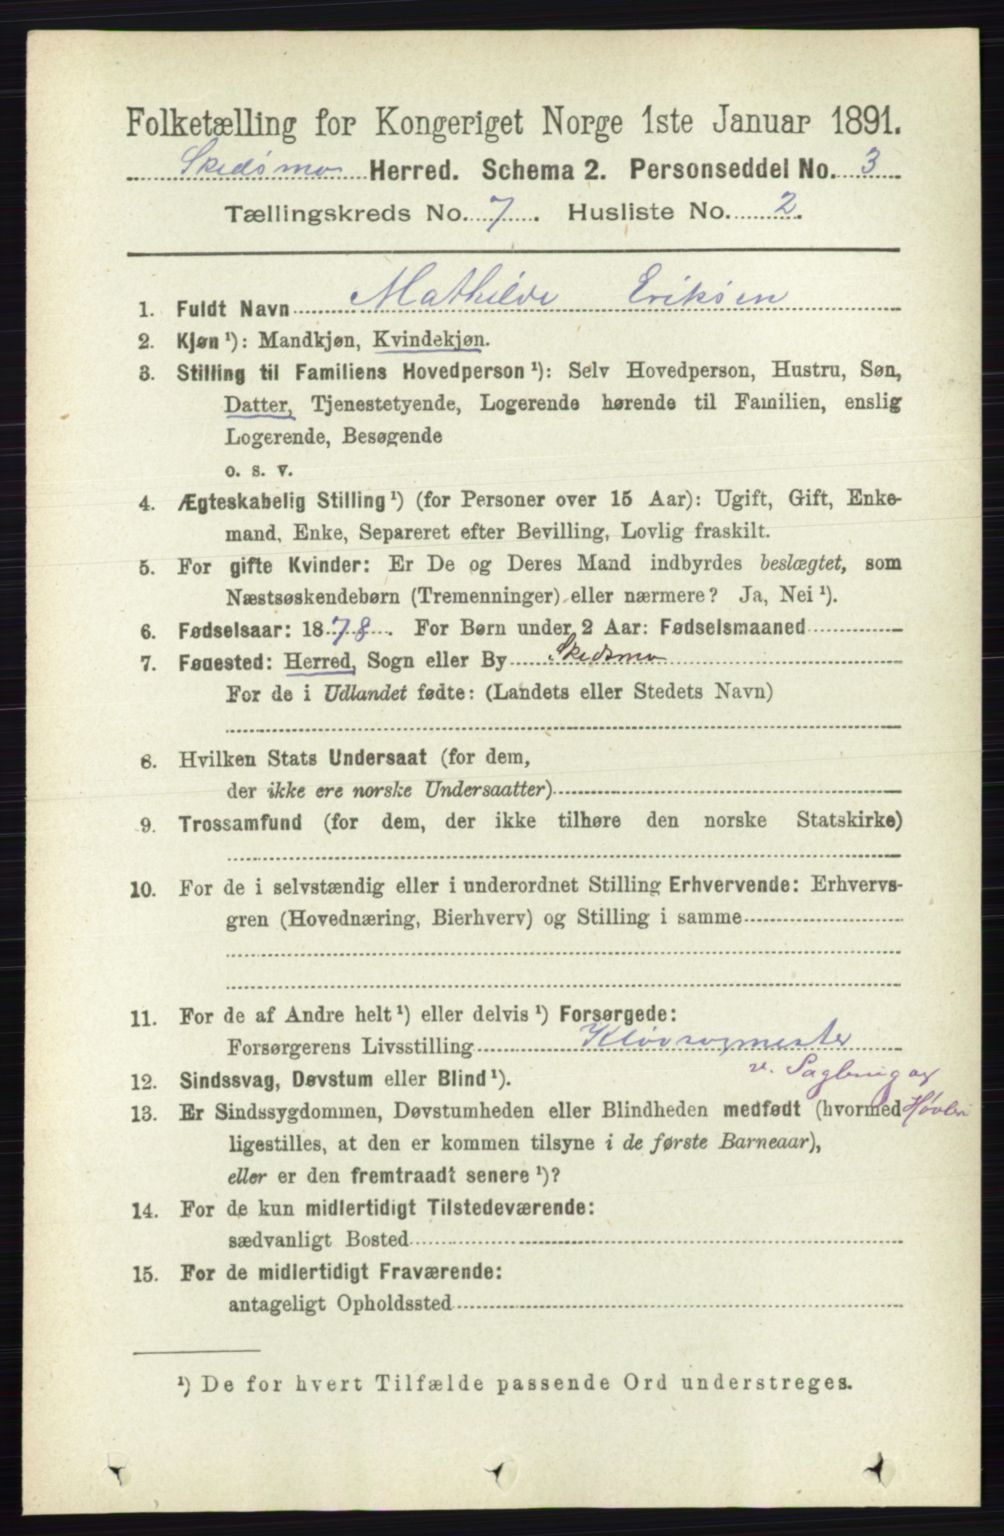 Folketælling for Kongeriget Norge 1ste Januar 1891.
Skedsmo Herred. Schema 2. Personseddel No. 3
Tællingskreds No. 7. Husliste No. 2.
1. Fuldt Navn Mathilde Eriksen
2. Kjøn ¹): Mandkjøn, Kvindekjøn.
3. Stilling til Familiens Hovedperson ¹): Selv Hovedperson, Hustru, Søn,
Datter, Tjenestetyende, Logerende hørende til Familien, enslig
Logerende, Besøgende
o. s. v.
4. Ægteskabelig Stilling ¹) (for Personer over 15 Aar): Ugift, Gift, Enke-
mand, Enke, Separeret efter Bevilling, Lovlig fraskilt.
5. For gifte Kvinder: Er De og Deres Mand indbyrdes beslægtet, som
Næstsøskendebørn (Tremenninger) eller nærmere? Ja, Nei ¹).
6. Fødselsaar: 1878. For Børn under 2 Aar: Fødselsmaaned
7. Fødested: Herred, Sogn eller By Skedsmo
For de i Udlandet fødte: (Landets eller Stedets Navn)
8. Hvilken Stats Undersaat (for dem,
der ikke ere norske Undersaatter)
9. Trossamfund (for dem, der ikke tilhøre den norske Statskirke)
10. For de i selvstændig eller i underordnet Stilling Erhvervende: Erhvervs-
gren (Hovednæring, Bierhverv) og Stilling i samme
11. For de af Andre helt ¹) eller delvis ¹) Forsørgede:
Forsørgerens Livsstilling Kløvsagmester
v. Sagbrug og
12. Sindssvag, Døvstum eller Blind ¹).
13. Er Sindssygdommen, Døvstumheden eller Blindheden medfødt (hvormed Høvleri
ligestilles, at den er kommen tilsyne i de første Barneaar),
eller er den fremtraadt senere ¹)?
14. For de kun midlertidigt Tilstedeværende:
sædvanligt Bosted
15. For de midlertidigt Fraværende:
antageligt Opholdssted
¹) De for hvert Tilfælde passende Ord understreges.